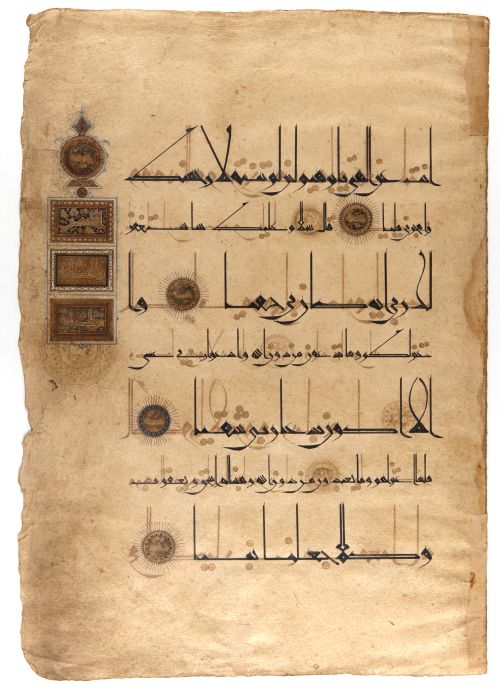 انت عن الهتي يابرهيم لئن لم تنته لارجمنك
واهجرني مليا قال سلم عليك ساستغفر
لك ربي انه كان بي حفيا وا
عتزلكم وما تدعون من دون الله وادعوا ربي عسى
الا اكون بدعا ربي شقيا
فلما اعتزلهم وما يعبدون من دون الله وهبنا له اسحق ويعقوب
وكلا جعلنا نبيا